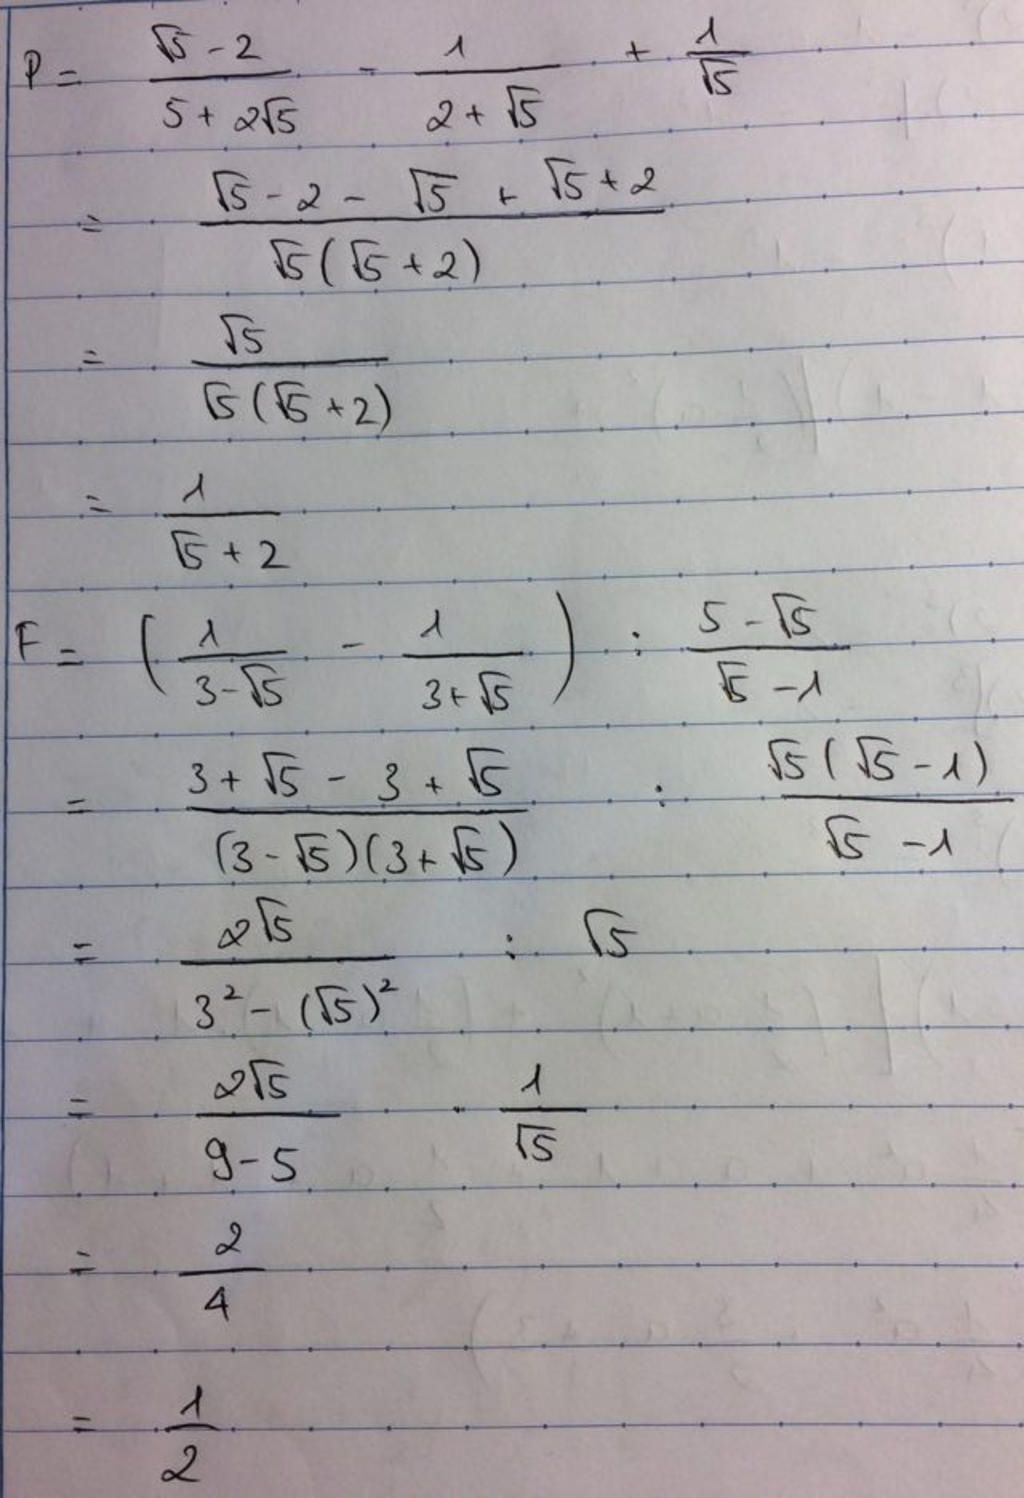 P = (√5 - 2)/(5 + 2√5) - 1/(2 + √5) + 1/√5
= (√5 - 2 - √5 + √5 + 2)/(√5(√5 + 2))
= √5/(√5(√5 + 2))
= 1/(√5 + 2)
F = (1/(3-√5) - 1/(3+√5)) : (5 - √5)/(√5 - 1)
= (3 + √5 - 3 + √5)/((3-√5)(3+√5)) : (√5(√5 - 1))/(√5 - 1)
= 2√5/(3² - (√5)²) : √5
= 2√5/(9 - 5) · 1/√5
= 2/4
= 1/2